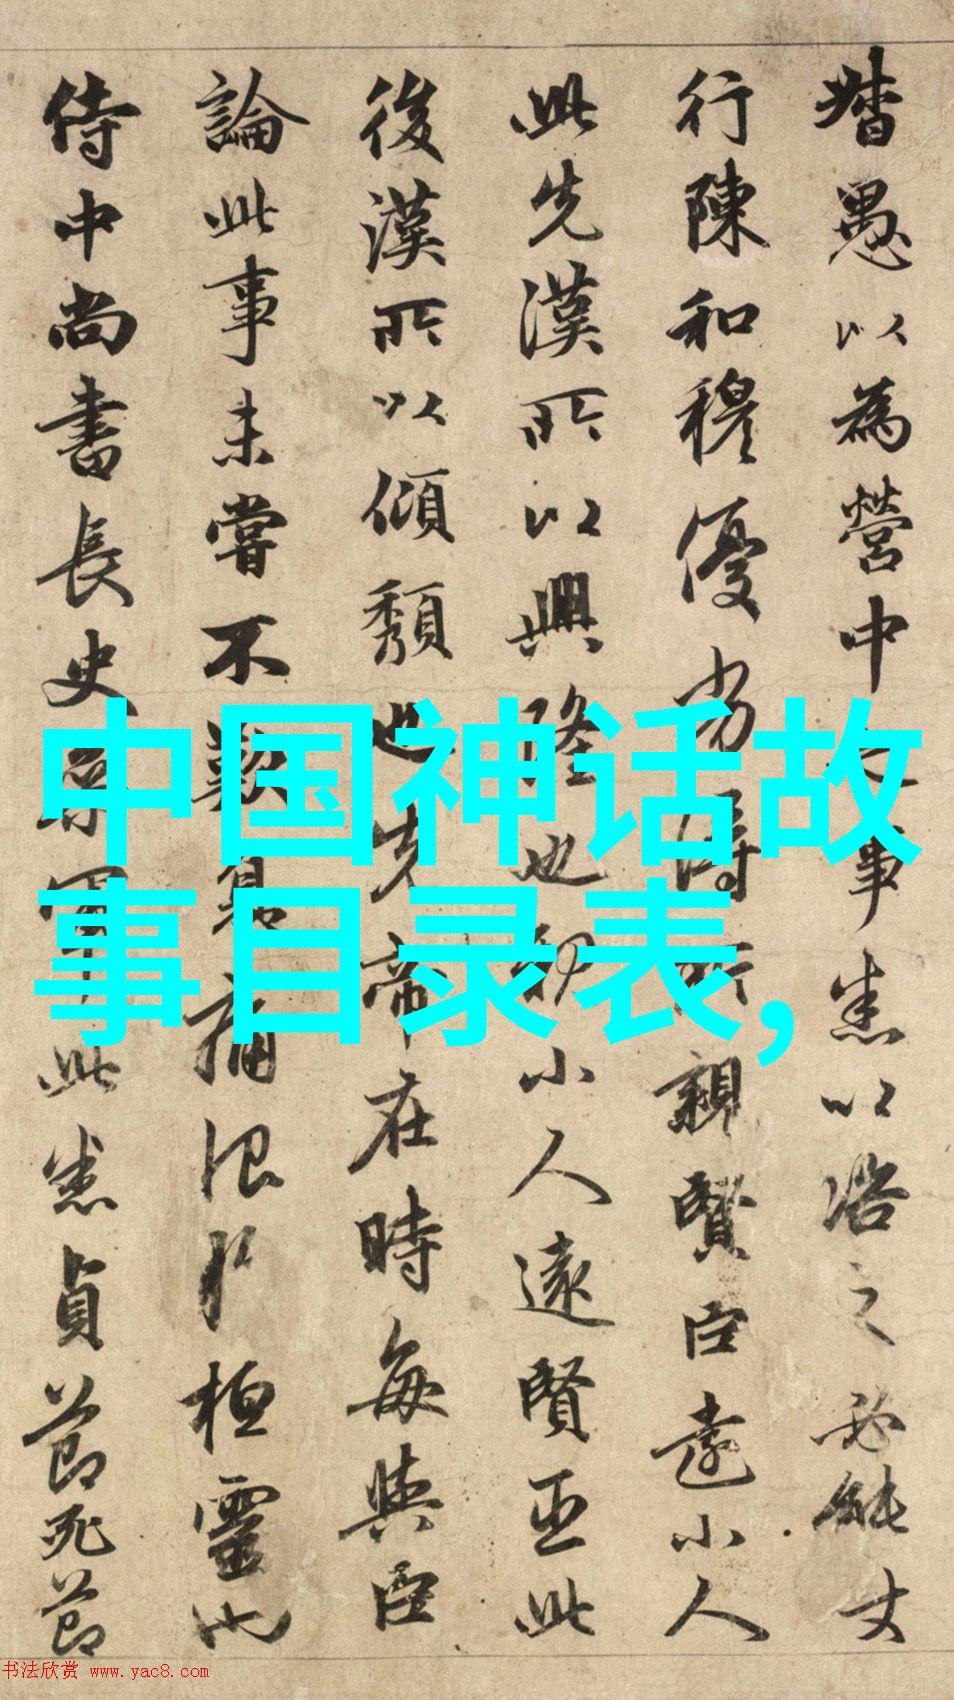 督愚以為營中之事悉以之必能
行陳和穆優劣得所親賢臣遠小人
此先漢所以興隆也親小人遠賢臣此
後漢所以傾頹也先帝在時每與臣
論此事未嘗不歎息痛恨於桓靈也
侍中尚書長史參軍此悉貞節死節
中国神话故
事目录表,
书法欣赏 www.yac8.com